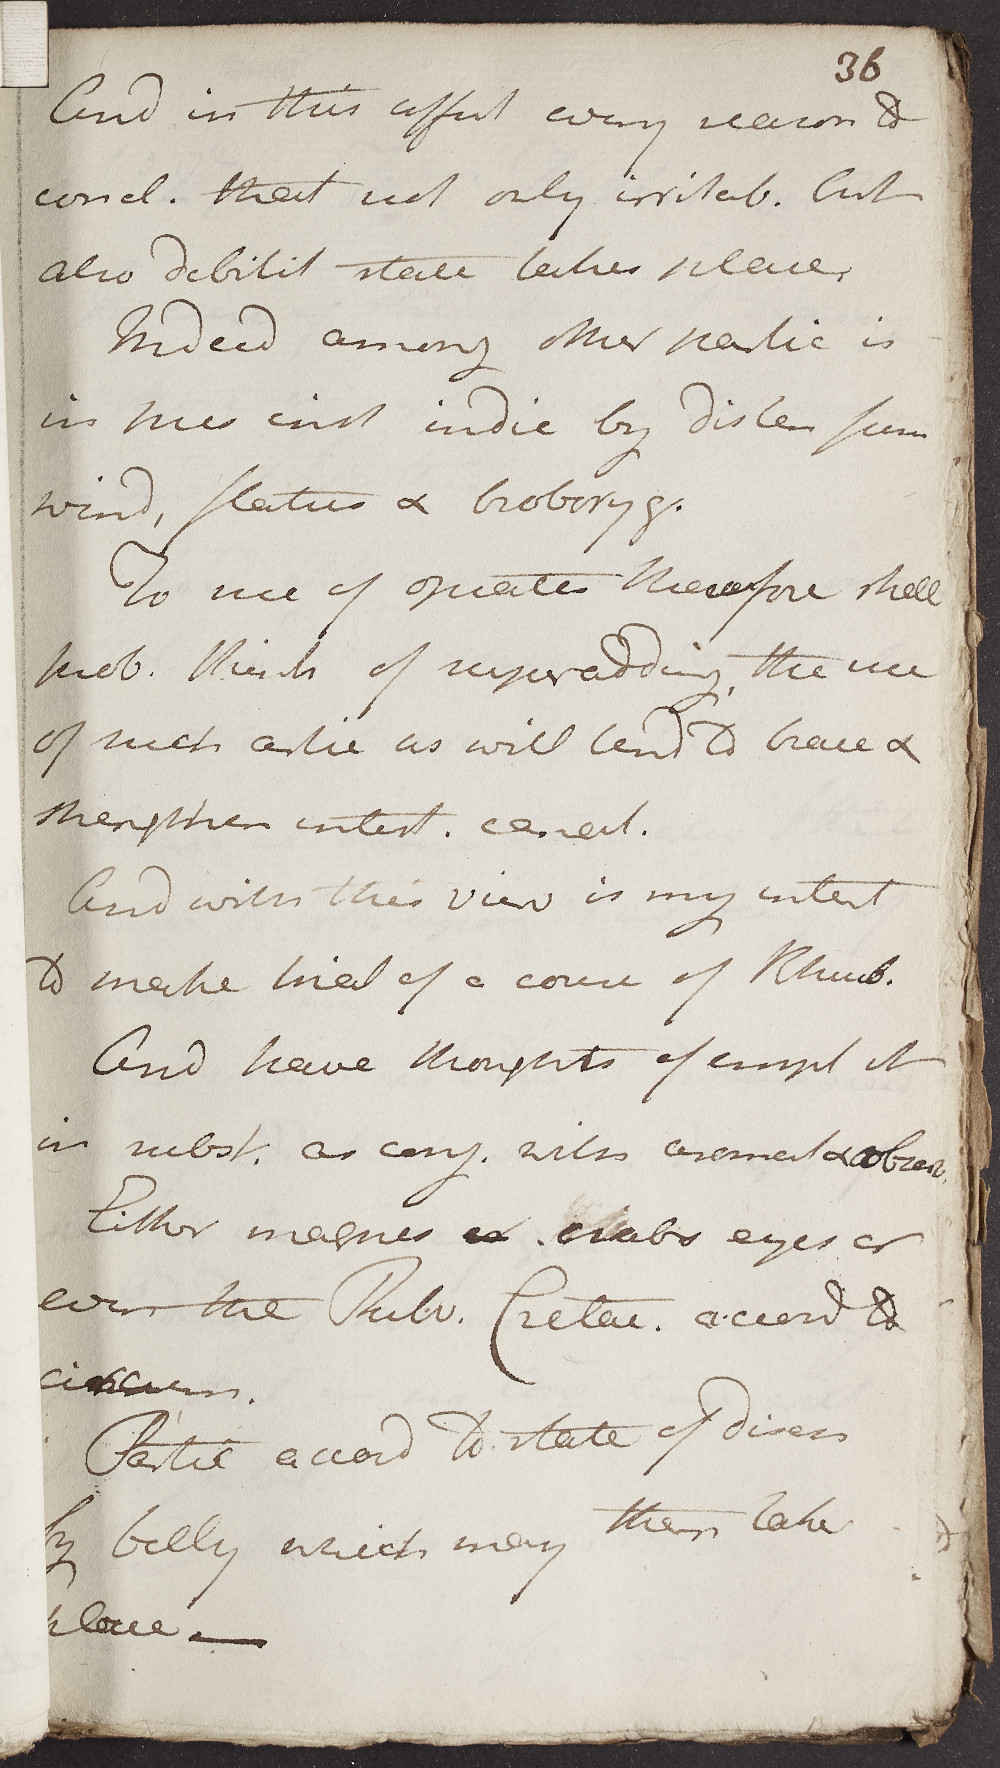 36
And in this affect every reason to
concl. that not only irritab. but
also debilit state takes place,
Indeed among other partic is
in pres inst indic by disten from
wind, flatus & broboryg.
To use of opiates therefore shall
prob. think of superadding the use
of such artic as will tend to brace &
strengthen intest. canal.
And with this view is my intent
to make trial of a course of Rhub.
And have thoughts of empl it
in subst. as conj. with aromat & absorb.
Either magnes or crabs eyes or
even the Pulv. Cretac. accord to
circum.
Partic accord to state of disch
by belly which may then take
place —